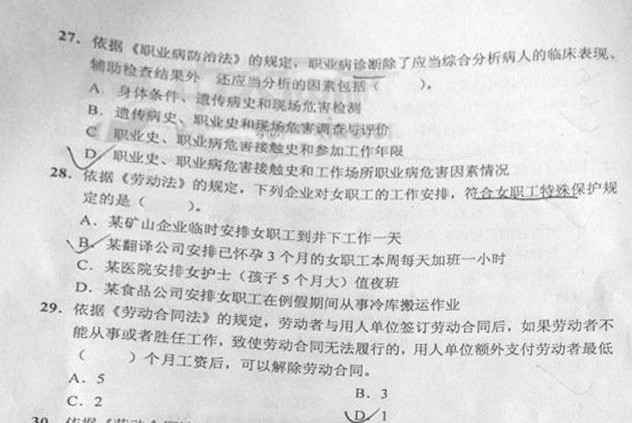 27. 依据《职业病防治法》的规定，职业病诊断除了应当综合分析病人的临床表现、
辅助检查结果外 还应当分析的因素包括（ ）。
A 身体条件、遗传病史和现场危害检测
B. 遗传病史、职业史和现场危害调查与评价
C 职业史、职业病危害接触史和参加工作年限
D. 职业史、职业病危害接触史和工作场所职业病危害因素情况
28. 依据《劳动法》的规定，下列企业对女职工的工作安排，符合女职工特殊保护规
定的是（ ）。
A. 某矿山企业临时安排女职工到井下工作一天
B. 某翻译公司安排已怀孕 3 个月的女职工本周每天加班一小时
C. 某医院安排女护士（孩子 5 个月大）值夜班
D. 某食品公司安排女职工在例假期间从事冷库搬运作业
29. 依据《劳动合同法》的规定，劳动者与用人单位签订劳动合同后，如果劳动者不
能从事或者胜任工作，致使劳动合同无法履行的，用人单位额外支付劳动者最低
（ ）个月工资后，可以解除劳动合同。
A. 5
B. 3
C. 2
D. 1
30